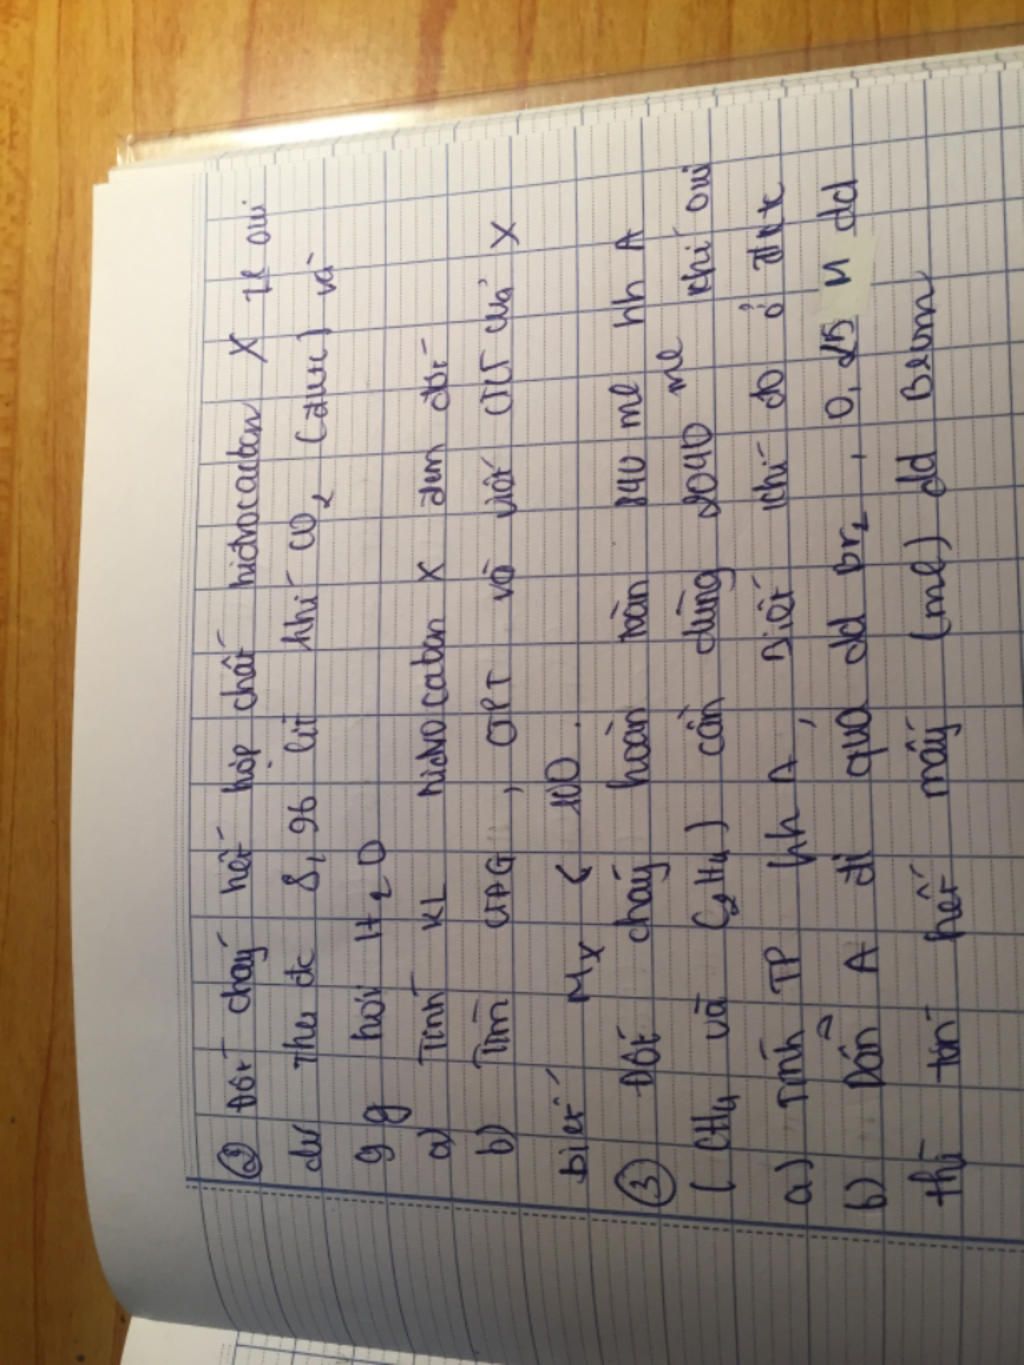 ② Đốt cháy hết hợp chất hidrocacbon X = oxi
dư thu đc 8,96 lít khí CO2 (đktc) và
9 g hơi H2O
a) Tính KL hidrocacbon X đem đốt
b) Tìm CTĐG, CTPT và viết CTCT của X
biết MX < 100.
③ Đốt cháy hoàn toàn 840 ml hh A
( CH4 và C2H4 ) cần dùng 2040 ml khí oxi
a) Tính TP hh A, Biết khí đo ở đktc
b) Dẫn A đi qua dd Br2, 0,25 M dd
thì tốn hết mấy (ml) dd Brom